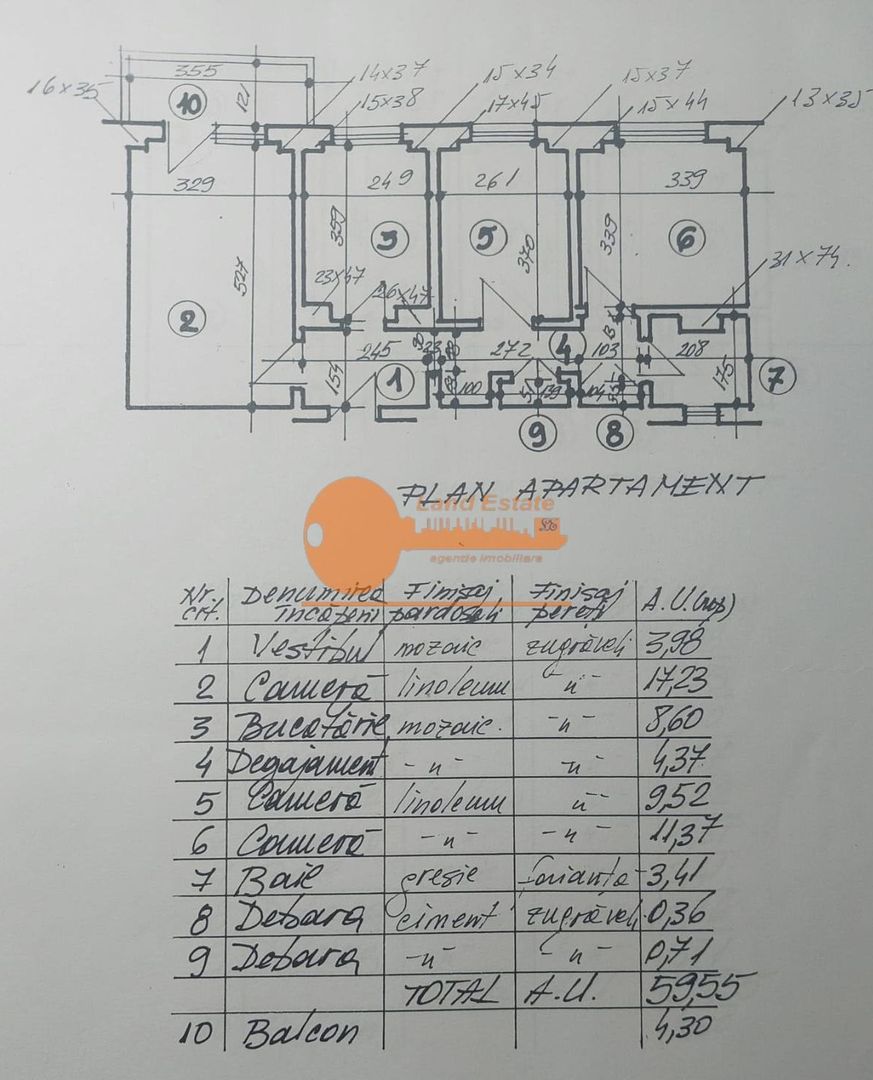 355
16x35
10
121
14x37
15x38
15x34
17x45
15x37
15x44
13x35
329
249
261
339
527
359
3
5
370
339
6
2
23x47
26x47
31x74.
245
154
1
23
272
4
103
208
175
7
100
139
104
9
8
PLAN APARTAMENT
Land Estate
agentie imobiliara
Nr. crt. Denumirea încăperii Finisaj pardoseli Finisaj pereți A.U.(mp)
1 Vestibul mozaic zugrăveli 3,98
2 Cameră linoleum -"- 17,23
3 Bucatărie mozaic. -"- 8,60
4 Degajament -"- -"- 4,37
5 Cameră linoleum -"- 9,52
6 Cameră -"- -"- 11,37
7 Baie gresie faianță 3,41
8 Debara ciment zugrăveli 0,36
9 Debara -"- -"- 0,71
TOTAL A.U. 59,55
10 Balcon 4,30